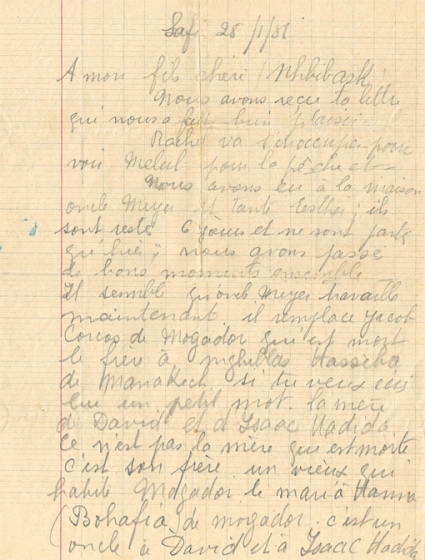 Safi 28/1/31
A mon fils chéri
Nous avons reçu ta lettre
qui nous a fait bien plaisir
Rachel va s'en occuper pour
voir Melul pour la pêche et
Nous avons eu à la maison
oncle Meyer et tante Esther; ils
sont resté 6 jours et ne sont partis
qu'hier; nous avons passé
de bons moments ensemble
Il semble qu'oncle Meyer travaille
maintenant il remplace Jacob
Corcos de Mogador qui est mort
le frère à Hassiba
de Marrakech si tu veux
lui un petit mot. la mère
de David et d Isaac Hadida
Ce n'est pas la mère qui est morte
c'est son frère un vieux qui
habite Mogador le mari à Hanna
(Bohafia) de mogador. c'est un
oncle à David et à Isaac Hadida